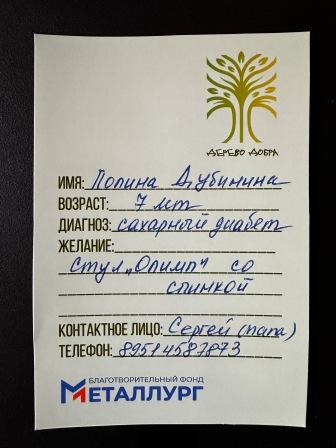 ДЕРЕВО ДОБРА
ИМЯ: Полина Дубинина
ВОЗРАСТ: 7 лет
ДИАГНОЗ: сахарный диабет
ЖЕЛАНИЕ:
Стул „Олимп" со
спинкой
КОНТАКТНОЕ ЛИЦО: Сергей (папа)
ТЕЛЕФОН: 89514587873
БЛАГОТВОРИТЕЛЬНЫЙ ФОНД
МЕТАЛЛУРГ